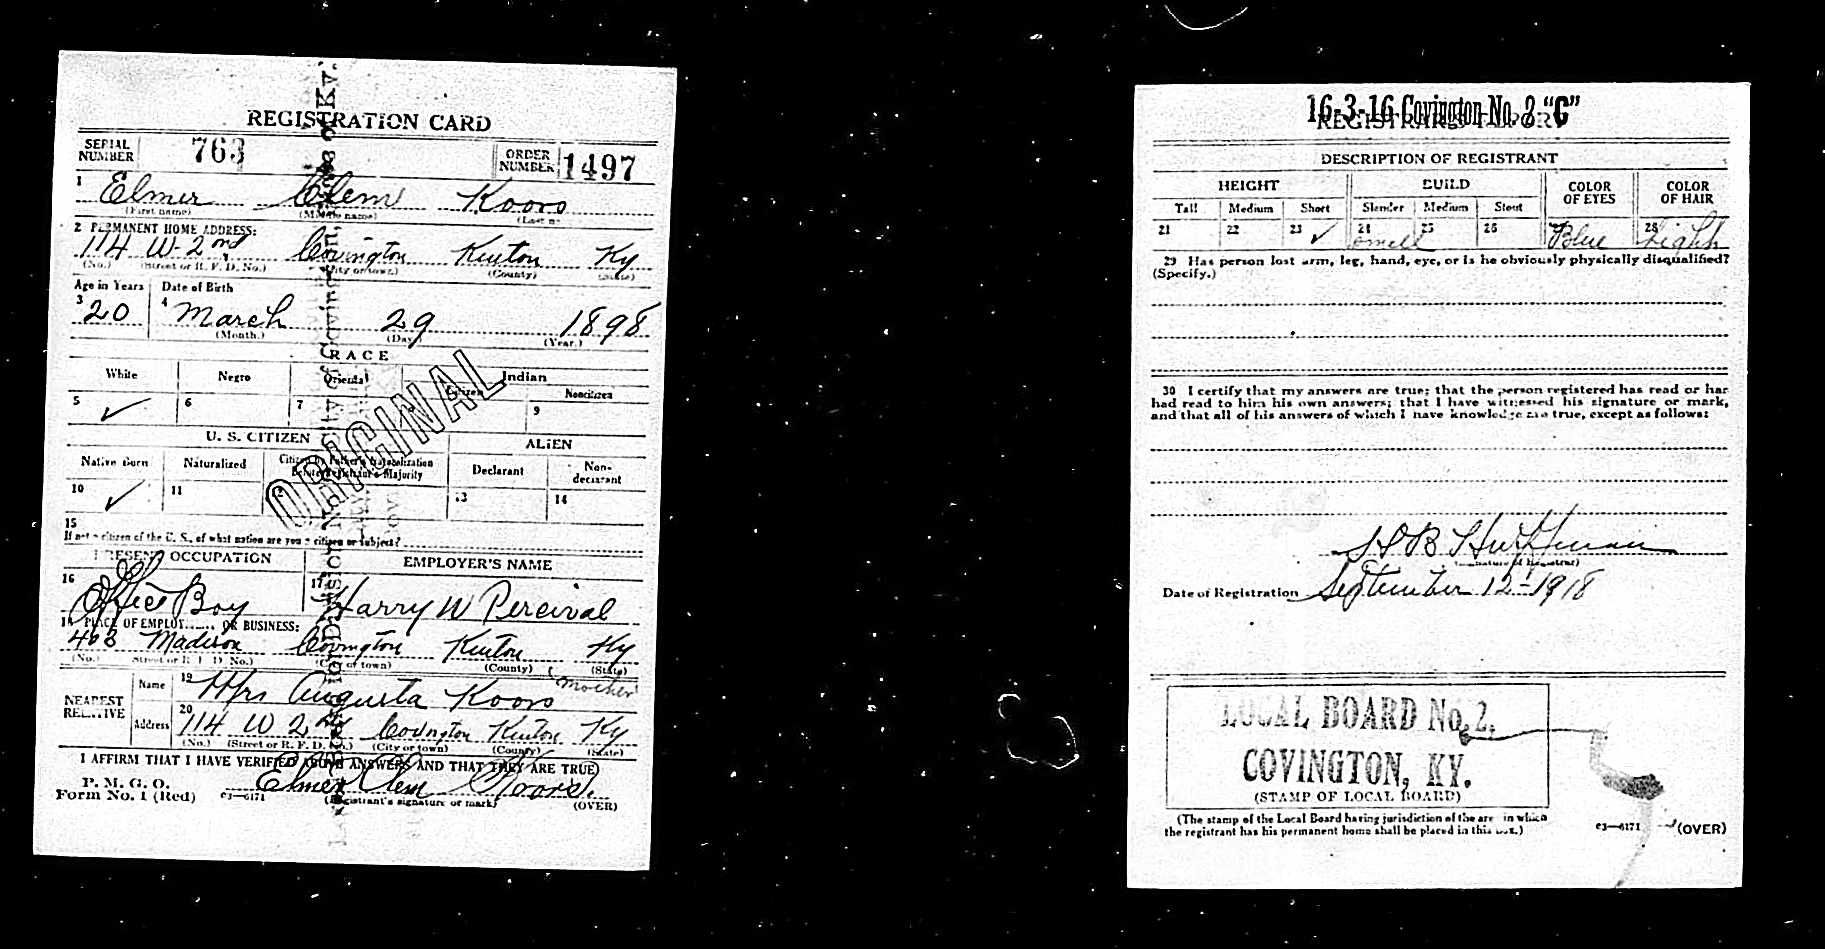 REGISTRATION CARD
SERIAL NUMBER 763 ORDER NUMBER 1497
1 Elmer Clem Koors
(First name) (Middle name) (Last n
2 PERMANENT HOME ADDRESS:
114 W 2nd Covington Kenton Ky
(No.) (Street or R. F. D. No.) (City or town) (County) (State)
Age in Years Date of Birth
3 20 4 March 29 1898
(Month.) (Day) (Year.)
RACE
White Negro Oriental Indian
Citizen Noncitizen
5 ✓ 6 7 9
U. S. CITIZEN ALIEN
Native Born Naturalized Citizen by Father's Naturalization Before Registrant's Majority Declarant Non-declarant
10 ✓ 11 12 13 14
ORIGINAL
15
If not a citizen of the U. S., of what nation are you a citizen or subject?
PRESENT OCCUPATION EMPLOYER'S NAME
16 Office Boy 17 Harry W Percival
18 PLACE OF EMPLOY OR BUSINESS:
403 Madison Covington Kenton Ky
(No.) Street or R. F. D. No.) (City or town) (County) (State)
NEAREST RELATIVE
Name 19 Mrs Augusta Koors (Mother
Address 20 114 W 2nd Covington Kenton Ky
(No.) (Street or R. F. D. No.) (City or town) (County) (State)
I AFFIRM THAT I HAVE VERIFIED ABOVE ANSWERS AND THAT THEY ARE TRUE)
P. M. G. O.
Form No. 1 (Red) c3—6171 Elmer Clem Koors.
(Registrant's signature or mark) (OVER)
16-3-16 Covington No. 2 "C"
REGISTRAR'S REPORT
DESCRIPTION OF REGISTRANT
HEIGHT BUILD COLOR OF EYES COLOR OF HAIR
Tall Medium Short Slender Medium Stout
21 22 23 ✓ 24 small 25 26 27 Blue 28 Light
29 Has person lost arm, leg, hand, eye, or is he obviously physically disqualified?
(Specify.)
30 I certify that my answers are true; that the person registered has read or has
had read to him his own answers; that I have witnessed his signature or mark,
and that all of his answers of which I have knowledge are true, except as follows:
Huffman
(Signature of Registrar)
Date of Registration September 12-1918
LOCAL BOARD No. 2.
COVINGTON, KY.
(STAMP OF LOCAL BOARD)
(The stamp of the Local Board having jurisdiction of the are in which
the registrant has his permanent home shall be placed in this box.)
c3—6171 (OVER)